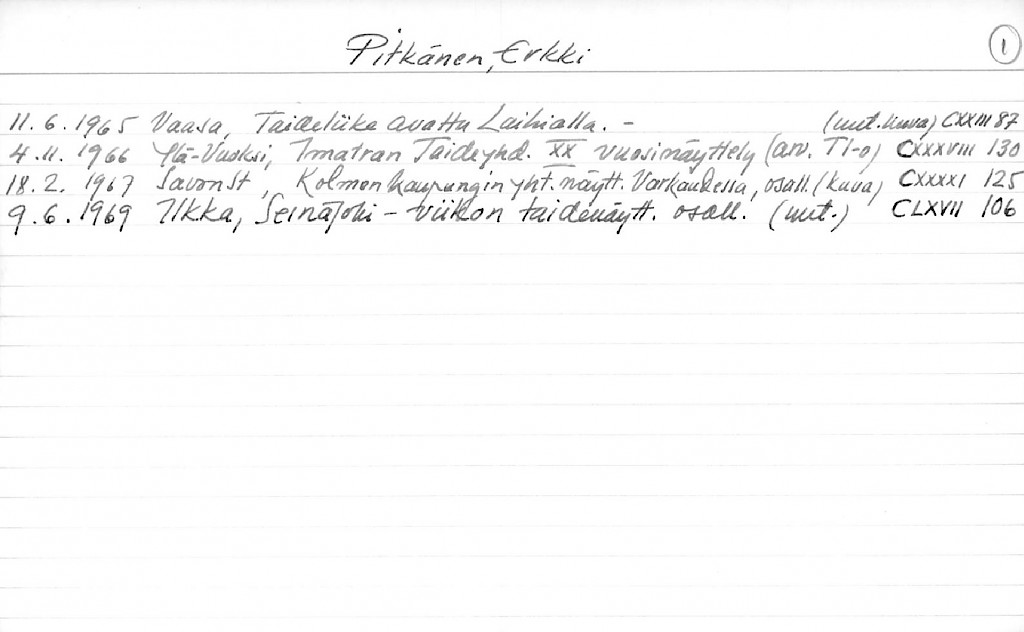 Pitkänen, Erkki 1
11.6.1965 Vaasa, Taideliike avattu Laihialla. - (uut. kuva) CXXIII 87
4.11.1966 Ylä-Vuoksi, Imatran Taideyhd. XX vuosinäyttely (arv. TI-o) CXXXVIII 130
18.2.1967 SavonSt, Kolmen kaupungin yht. näytt. Varkaudessa, osall. (kuva) CXXXXI 125
9.6.1969 Ilkka, Seinäjoki - viikon taidenäytt. osall. (uut.) CLXVII 106